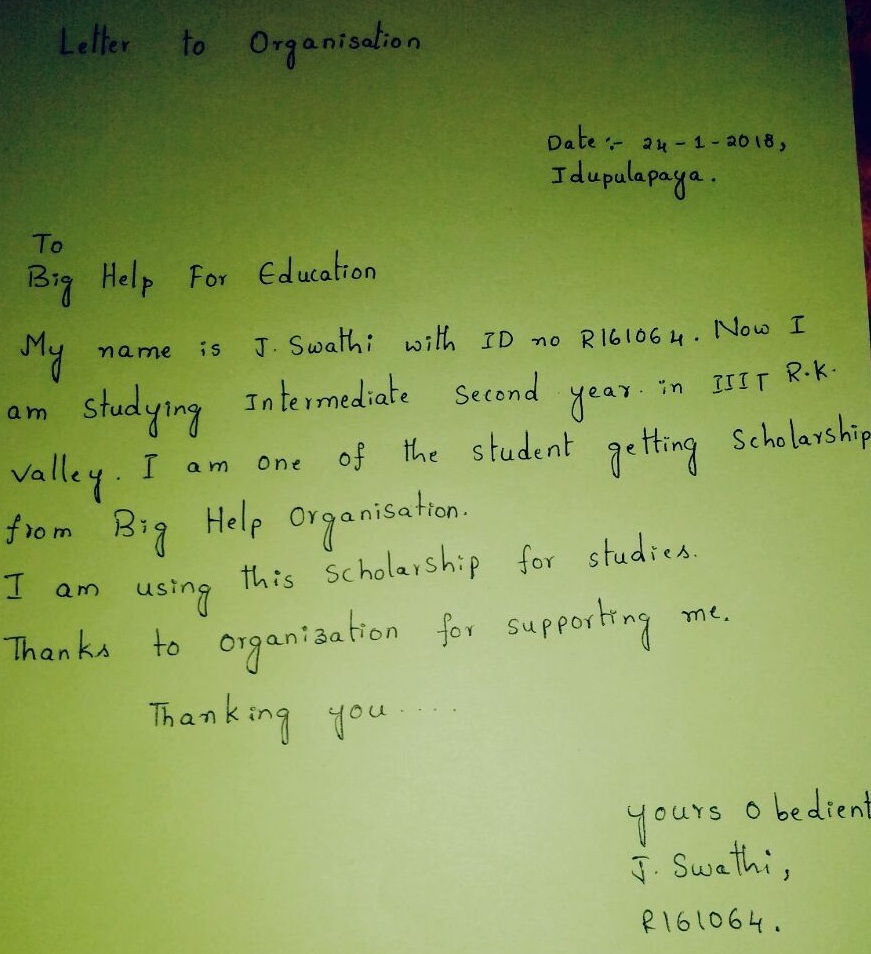 Letter to Organisation
Date :- 24-1-2018,
Idupulapaya.
To
Big Help For Education
My name is J. Swathi with ID no R161064. Now I
am studying Intermediate Second year. in IIIT R.K.
valley. I am one of the student getting Scholarship
from Big Help Organisation.
I am using this Scholarship for studies.
Thanks to organization for supporting me.
Thanking you ....
yours Obedient
J. Swathi,
R161064.